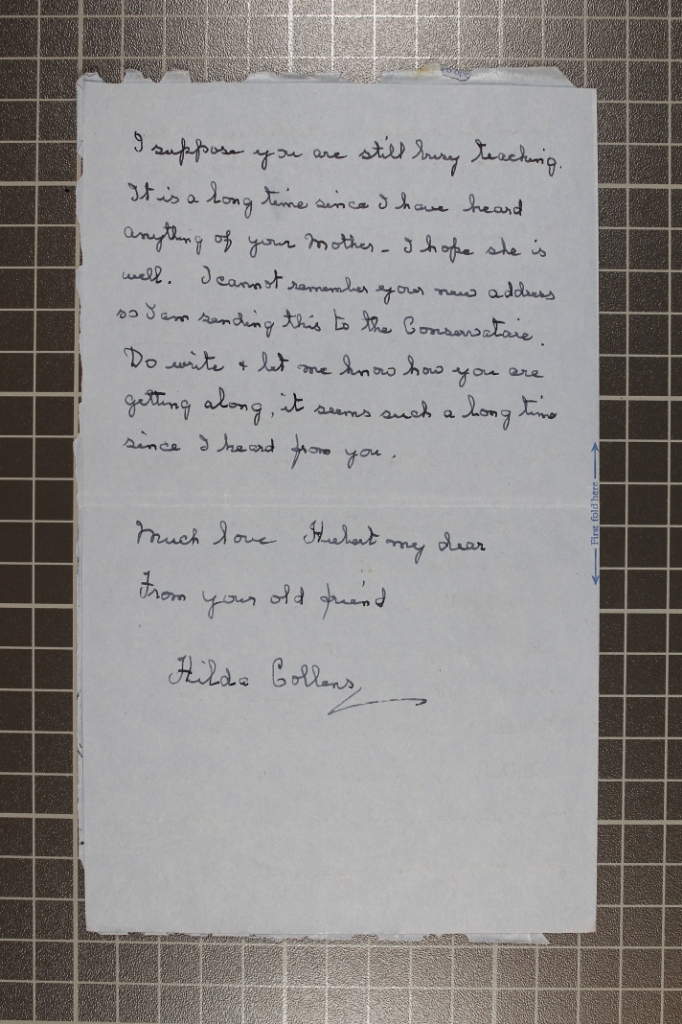 I suppose you are still busy teaching.
It is a long time since I have heard
anything of your Mother - I hope she is
well. I cannot remember your new address
so I am sending this to the Conservataire.
Do write + let me know how you are
getting along, it seems such a long time
since I heard from you.
Much love Hubert my dear
From your old friend
Hilda Collens
First fold here